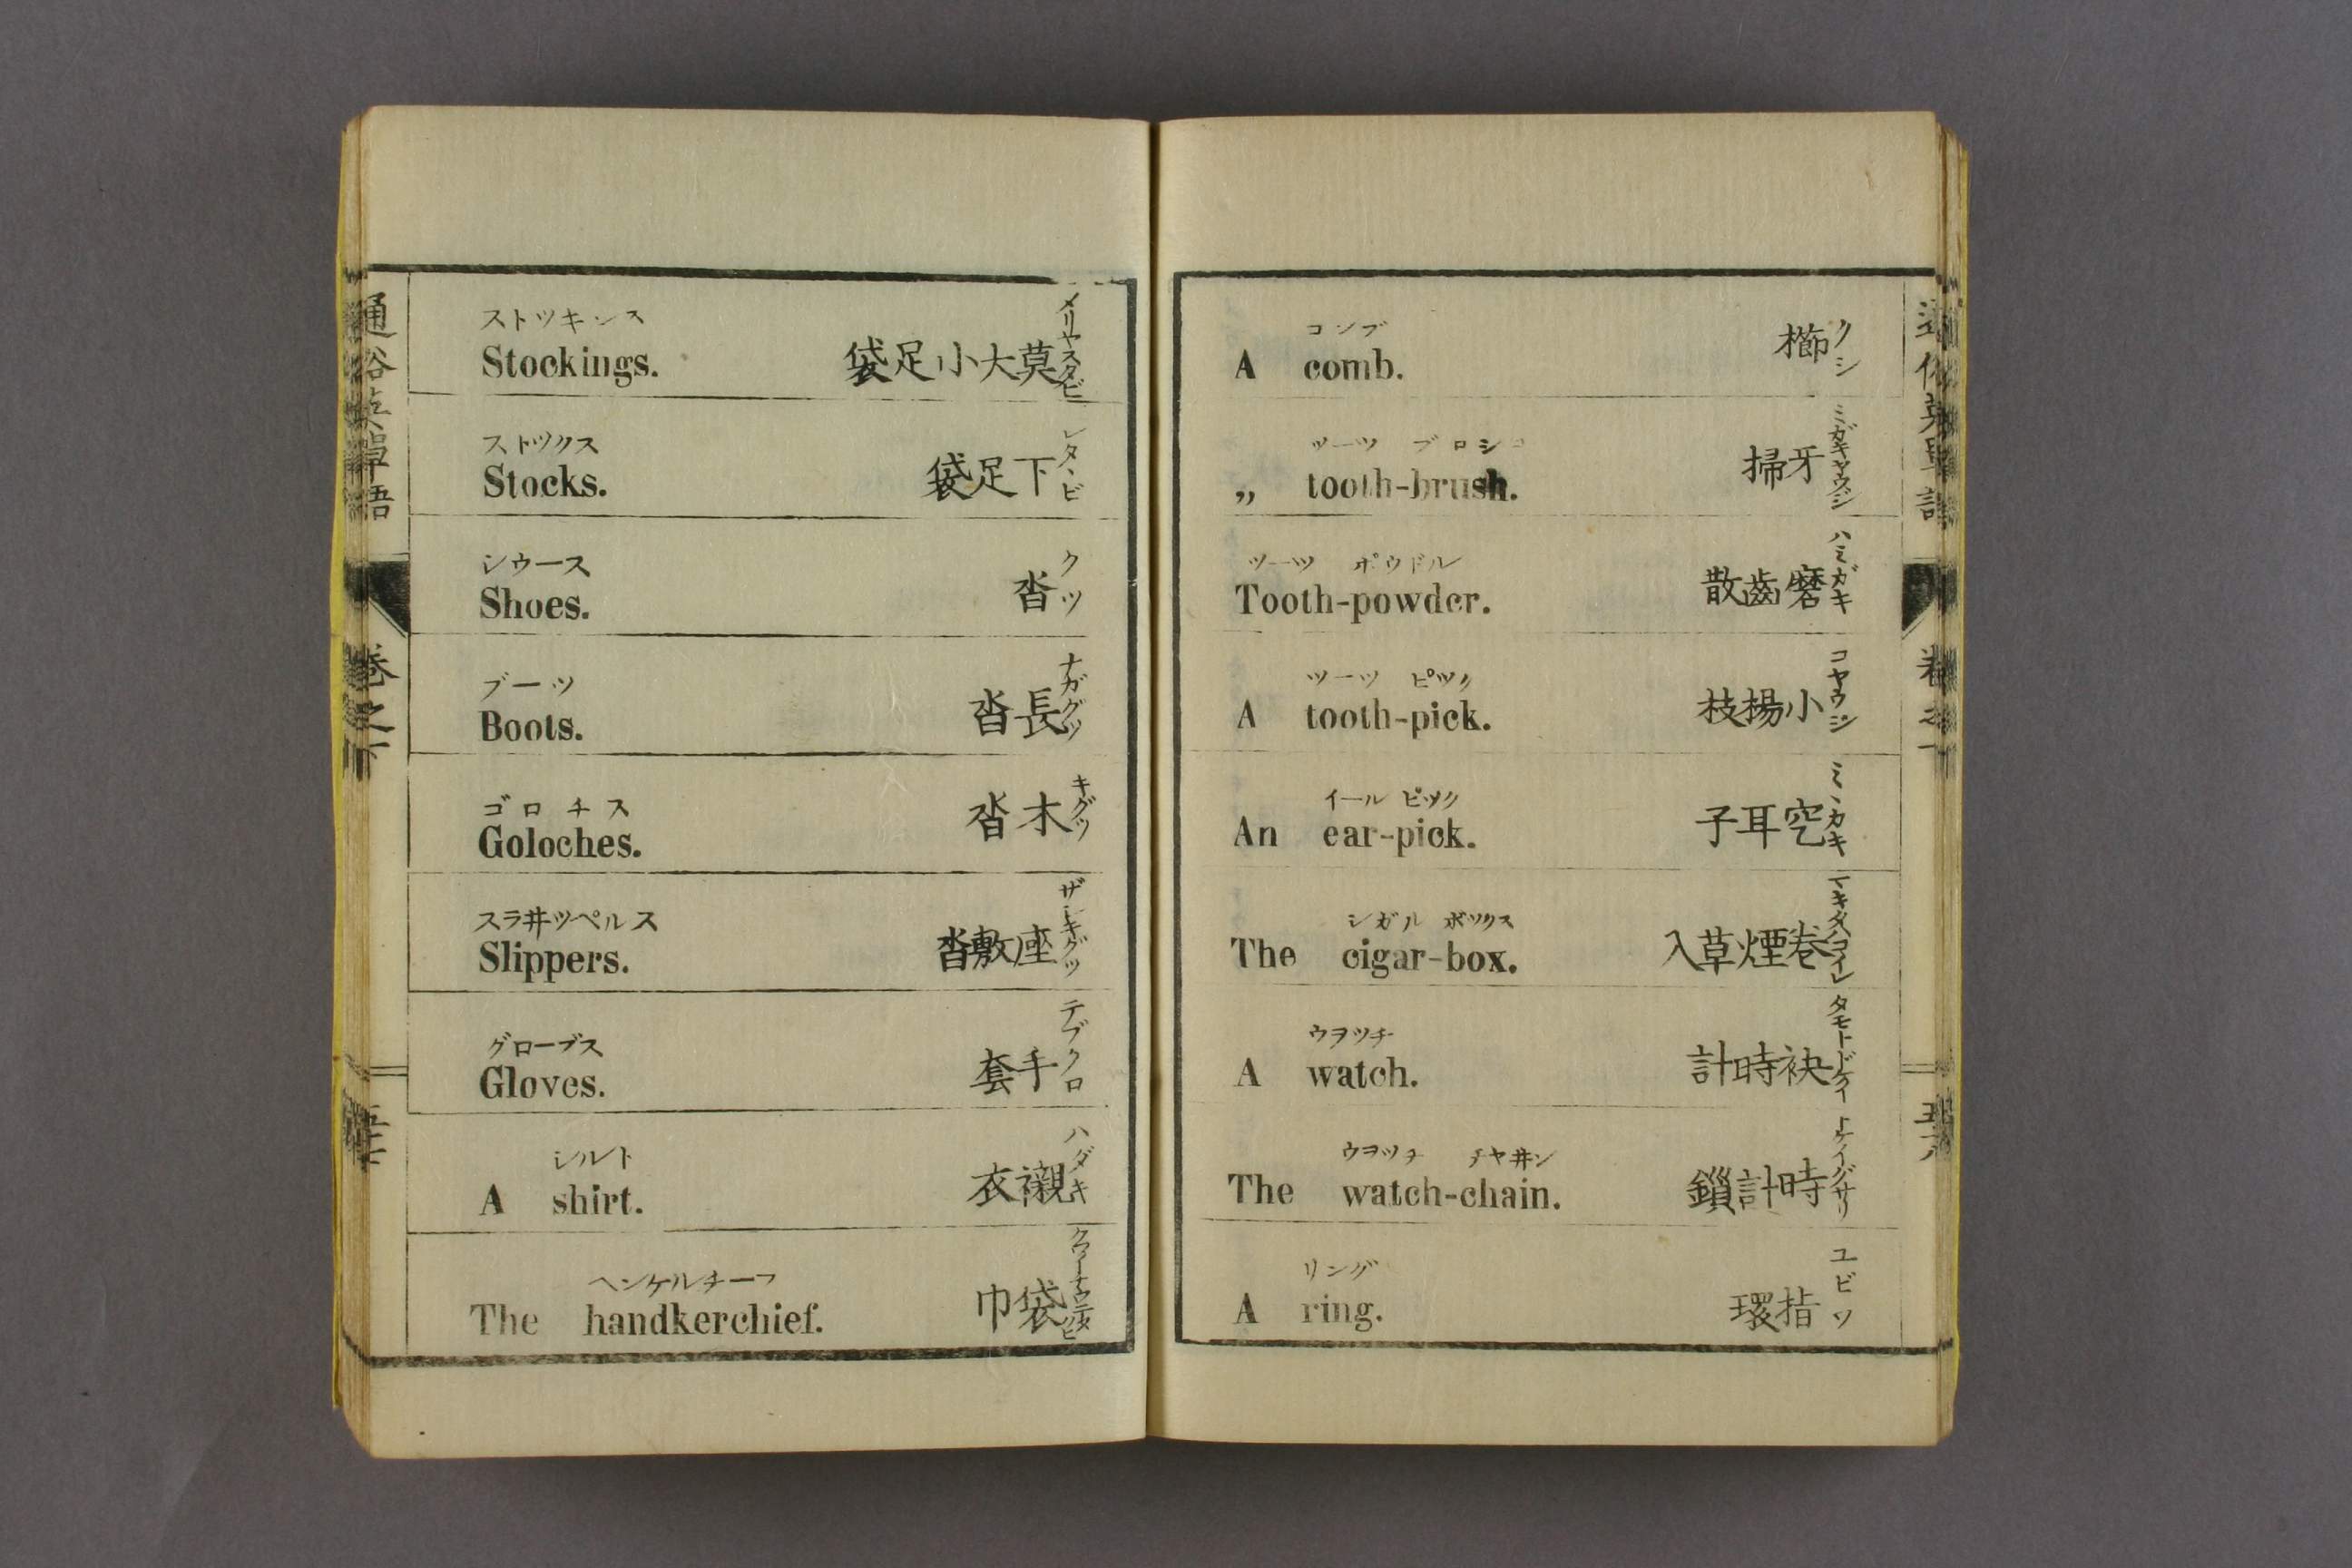 通俗英單語
巻之下
ストツキンス
Stockings.
莫大小足袋
メリヤスタビ
ストツクス
Stocks.
下足袋
シタヽビ
シウース
Shoes.
沓
クツ
ブーツ
Boots.
長沓
ナガグツ
ゴロチス
Goloches.
木沓
キグツ
スラ井ツペルス
Slippers.
座敷沓
ザシキグツ
グローブス
Gloves.
手套
テブクロ
シルト
A shirt.
襯衣
ハダキ
ヘンケルチーフ
The handkerchief.
袋巾
コンブ
A comb.
櫛
クシ
ツーツ ブロシユ
„ tooth-brush.
牙掃
ミガキヤウジ
ツーツ ポウドル
Tooth-powder.
磨齒散
ハミガキ
ツーツ ピツク
A tooth-pick.
小楊枝
コヤウジ
イール ピツク
An ear-pick.
空耳子
ミヽカキ
シガル ボツクス
The cigar-box.
巻煙草入
マキタバコイレ
ウヲツチ
A watch.
袂時計
タモトドケイ
ウヲツチ チヤ井ン
The watch-chain.
時計鎻
トケイグサリ
リング
A ring.
指環
ユビワ